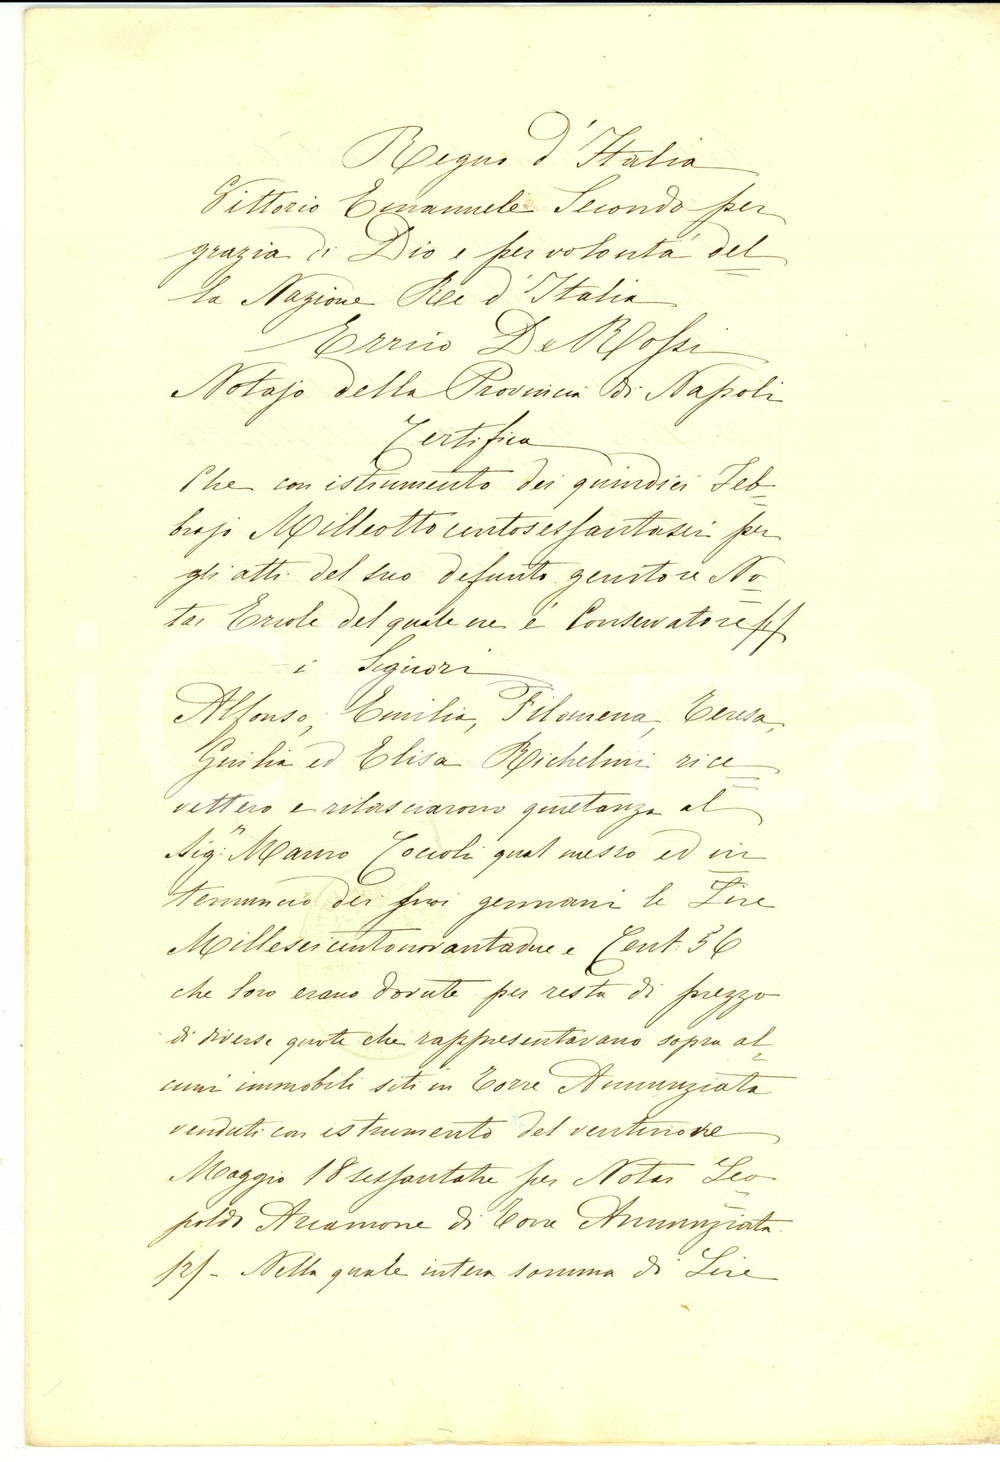 Regno d'Italia
Vittorio Emanuele Secondo per
grazia di Dio e per volontà del=
la Nazione Re d'Italia
Errico De Rossi
Notajo della Provincia di Napoli
Certifica
Che con istrumento dei quindici Feb=
brajo Milleottocentosessantasei per
gli atti del suo defunto genitore No=
tar Ercole del quale ne è Conservatore
i Signori
Alfonso, Emilia, Filomena, Teresa,
Giulia ed Elisa Richelmi rice=
vettero e rilasciarono quietanza al
Sig.r Mauro Coccoli qual messo ed in
ternuncio dei suoi germani le Lire
Milleseicentonovantadue e Cent: 56
che loro erano dovute per resta di prezzo
di diverse quote che rappresentavano sopra al=
cuni immobili siti in Torre Annunziata
venduti con istrumento del ventinove
Maggio 18sessantatre per Notar Leo=
poldo Arcamone di Torre Annunziata
/2/- Nella quale intera somma di Lire